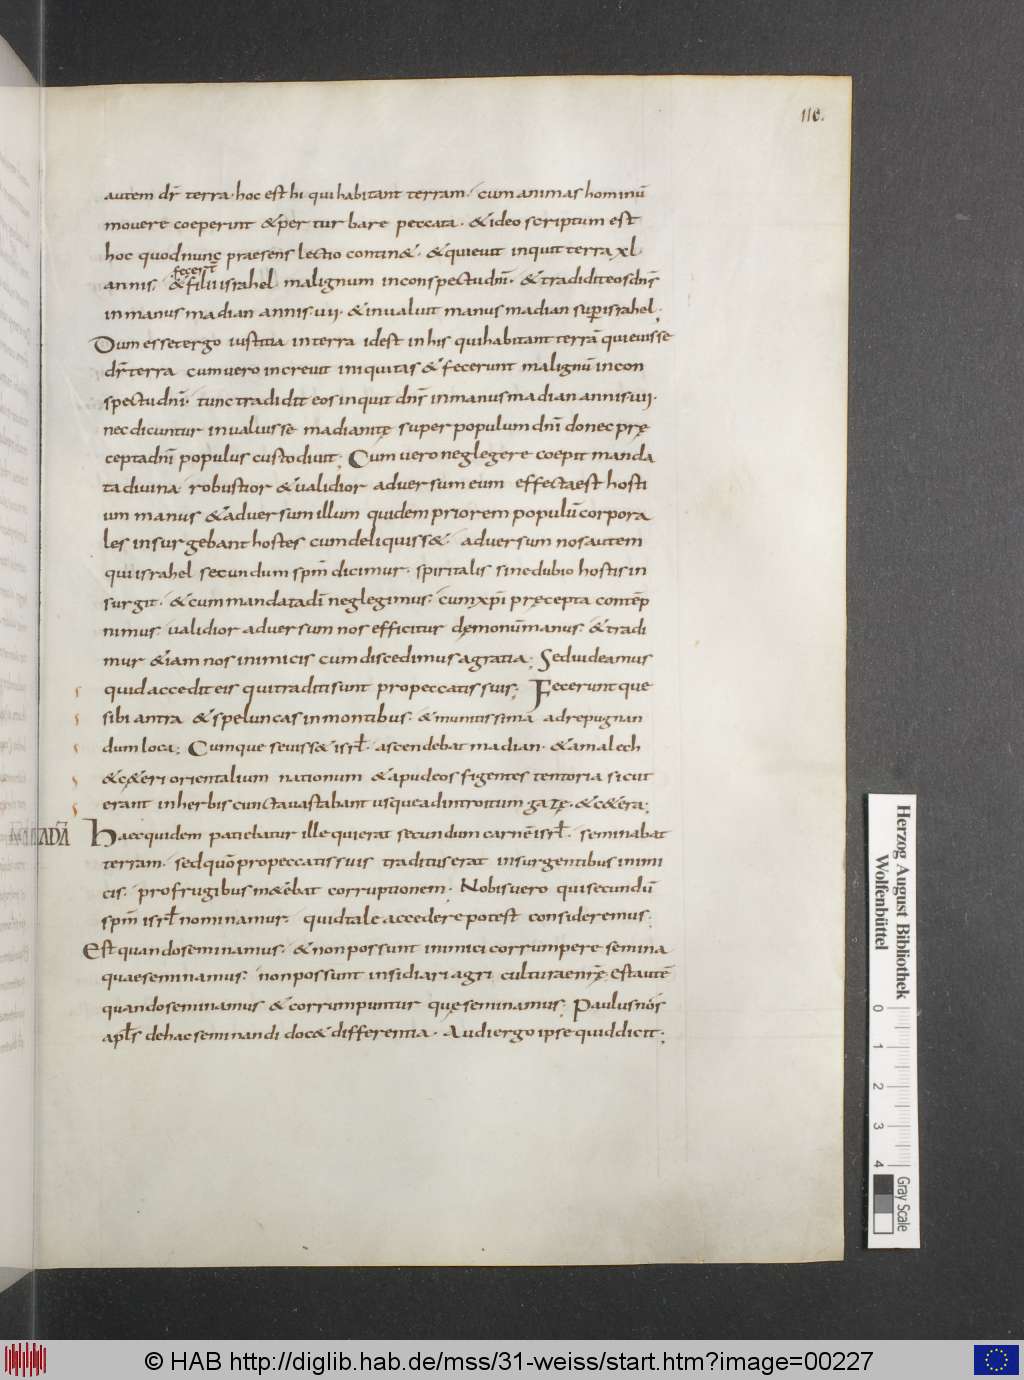 116.
autem dr̄ terra· hoc est hi qui habitant terram· cum animas hominū
movere coeperint & per tur bare peccata· & ideo scriptum est
hoc quod nunc praesens lectio contin&· & quievit inquit terra xl
annis; & fecer̄t filii israhel malignum in conspectu dnī· & tradidit eos dns̄
in manus madian annis vii· & invaluit manus madian sup israhel·
Dum esset ergo iustitia in terra id est in his qui habitant terrā quievisse
dr̄ terra cum vero increvit iniquitas & fecerunt malignū in con
spectu dnī· tunc tradidit eos inquit dns̄ in manus madian annis vii·
nec dicuntur invaluisse madianitę super populum dnī donec prę
cepta dnī populus custodivit; Cum vero neglegere coepit manda
ta divina robustior & validior adversum eum effecta est hosti
um manus & adversum illum quidem priorem populū corpora
les insurgebant hostes cum deliquiss&· adversum nos autem
qui israhel secundum spm̄ dicimur· spiritalis sine dubio hostis in
surgit· & cum mandata dī neglegimus· cum xp̄i pręcepta contēp
nimus validior adversum nos efficitur dęmonū manus· & tradi
mur & iam nos inimicis cum discedimus a gratia; Sed videamus
quid accedit eis qui traditi sunt pro peccatis suis; Fecerunt que
sibi antra & speluncas in montibus· & munitissima ad repugnan
dum loca; Cumque seviss& isrl̄· ascendebat madian· & amalech
& c&eri orientalium nationum & apud eos figentes tentoria sicut
erant in herbis cuncta vastabant usque ad introitum gazę· & c&era;
ADĀ
Haec quidem patiebatur ille qui erat secundum carnē isrl̄· seminabat
terram· sed quō pro peccatis suis traditus erat insurgentibus inimi
cis· pro frugibus m&ēbat corruptionem· Nobis vero qui secundū
spm̄ isrl̄ nominamur· quid tale accedere potest consideremus;
Est quando seminamus· & non possunt inimici corrumpere semina
quae seminamus· non possunt insidiari agri culturae nrę̄ est autē
quando seminamus & corrumpuntur quę seminamus· Paulus nos
apl̄s de hac seminandi doc& differentia· Audi ergo ipse quid dicit;
Herzog August Bibliothek
Wolfenbüttel
0 1 2 3 4
Gray Scale
© HAB http://diglib.hab.de/mss/31-weiss/start.htm?image=00227